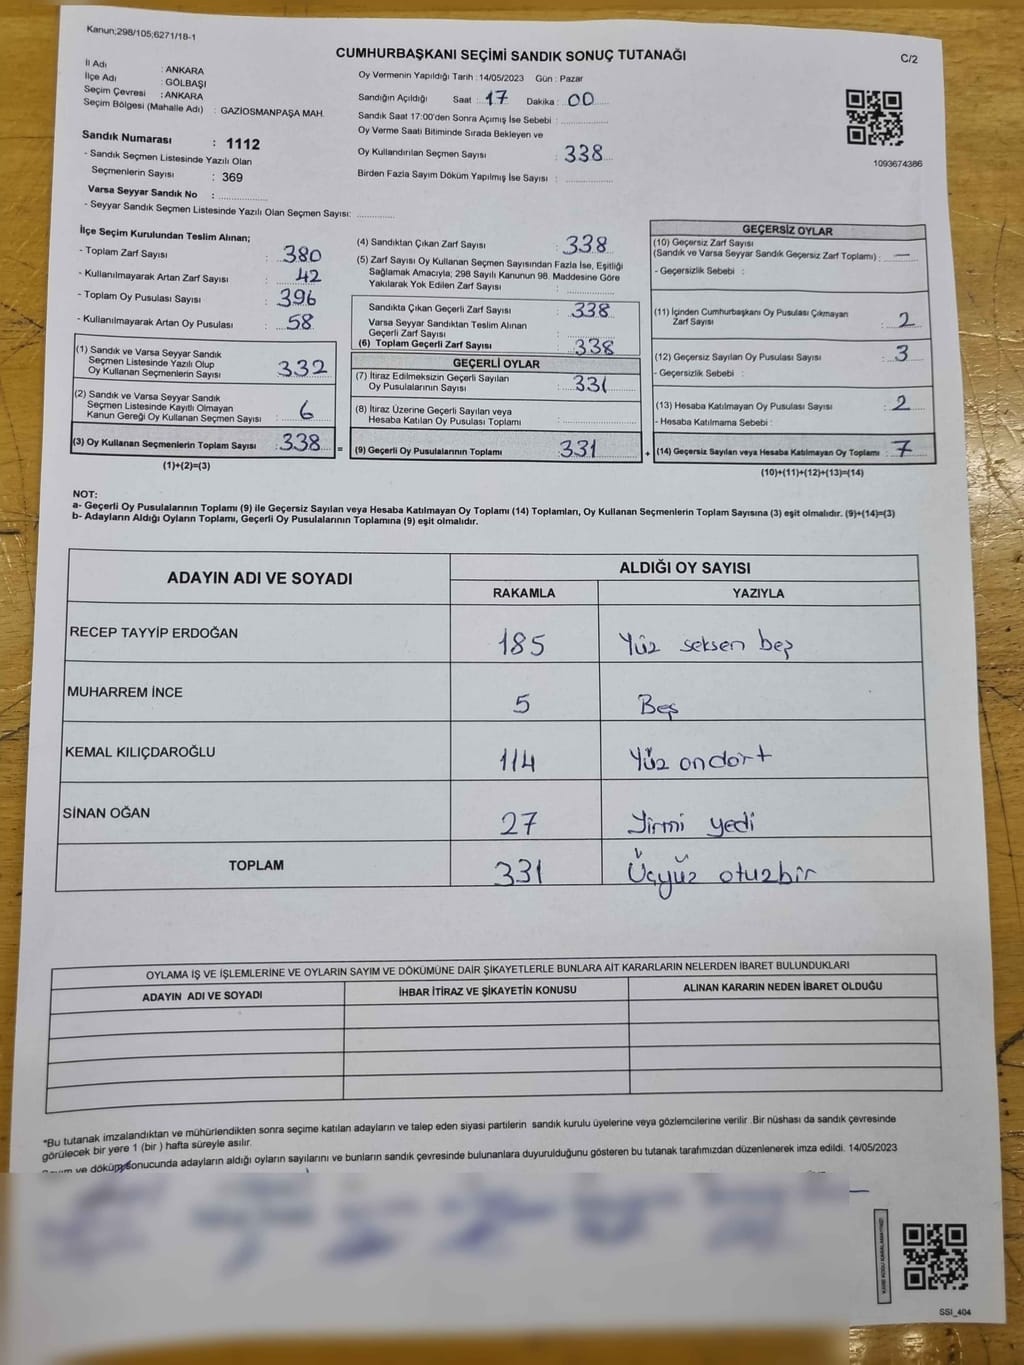 Kanun;298/105;6271/18-1
CUMHURBAŞKANI SEÇİMİ SANDIK SONUÇ TUTANAĞI
C/2
İl Adı : ANKARA
İlçe Adı : GÖLBAŞI
Seçim Çevresi : ANKARA
Seçim Bölgesi (Mahalle Adı) : GAZİOSMANPAŞA MAH.
Sandık Numarası : 1112
- Sandık Seçmen Listesinde Yazılı Olan
Seçmenlerin Sayısı : 369
Varsa Seyyar Sandık No : ..............
- Seyyar Sandık Seçmen Listesinde Yazılı Olan Seçmen Sayısı: ............
Oy Vermenin Yapıldığı Tarih : 14/05/2023 Gün : Pazar
Sandığın Açıldığı Saat : 17 Dakika : 00
Sandık Saat 17:00'den Sonra Açımış İse Sebebi : ..............
Oy Verme Saati Bitiminde Sırada Bekleyen ve
Oy Kullandırılan Seçmen Sayısı : 338
Birden Fazla Sayım Döküm Yapılmış İse Sayısı : ..............
1093674386
İlçe Seçim Kurulundan Teslim Alınan;
- Toplam Zarf Sayısı : 380
- Kullanılmayarak Artan Zarf Sayısı : 42
- Toplam Oy Pusulası Sayısı : 396
- Kullanılmayarak Artan Oy Pusulası : 58
(1) Sandık ve Varsa Seyyar Sandık
Seçmen Listesinde Yazılı Olup
Oy Kullanan Seçmenlerin Sayısı : 332
(2) Sandık ve Varsa Seyyar Sandık
Seçmen Listesinde Kayıtlı Olmayan
Kanun Gereği Oy Kullanan Seçmen Sayısı : 6
(3) Oy Kullanan Seçmenlerin Toplam Sayısı : 338 =
(1)+(2)=(3)
(4) Sandıktan Çıkan Zarf Sayısı : 338
(5) Zarf Sayısı Oy Kullanan Seçmen Sayısından Fazla İse, Eşitliği
Sağlamak Amacıyla; 298 Sayılı Kanunun 98. Maddesine Göre
Yakılarak Yok Edilen Zarf Sayısı : ..............
Sandıkta Çıkan Geçerli Zarf Sayısı : 338
Varsa Seyyar Sandıktan Teslim Alınan
Geçerli Zarf Sayısı : ..............
(6) Toplam Geçerli Zarf Sayısı : 338
GEÇERLİ OYLAR
(7) İtiraz Edilmeksizin Geçerli Sayılan
Oy Pusulalarının Sayısı : 331
(8) İtiraz Üzerine Geçerli Sayılan veya
Hesaba Katılan Oy Pusulası Toplamı : ..............
(9) Geçerli Oy Pusulalarının Toplamı : 331 +
GEÇERSİZ OYLAR
(10) Geçersiz Zarf Sayısı
(Sandık ve Varsa Seyyar Sandık Geçersiz Zarf Toplamı) : —
- Geçersizlik Sebebi :
(11) İçinden Cumhurbaşkanı Oy Pusulası Çıkmayan
Zarf Sayısı : 2
(12) Geçersiz Sayılan Oy Pusulası Sayısı : 3
- Geçersizlik Sebebi :
(13) Hesaba Katılmayan Oy Pusulası Sayısı : 2
- Hesaba Katılmama Sebebi :
(14) Geçersiz Sayılan veya Hesaba Katılmayan Oy Toplamı : 7
(10)+(11)+(12)+(13)=(14)
NOT:
a- Geçerli Oy Pusulalarının Toplamı (9) ile Geçersiz Sayılan veya Hesaba Katılmayan Oy Toplamı (14) Toplamları, Oy Kullanan Seçmenlerin Toplam Sayısına (3) eşit olmalıdır. (9)+(14)=(3)
b- Adayların Aldığı Oyların Toplamı, Geçerli Oy Pusulalarının Toplamına (9) eşit olmalıdır.
ADAYIN ADI VE SOYADI
ALDIĞI OY SAYISI
RAKAMLA YAZIYLA
RECEP TAYYİP ERDOĞAN 185 Yüz seksen beş
MUHARREM İNCE 5 Beş
KEMAL KILIÇDAROĞLU 114 Yüz ondört
SİNAN OĞAN 27 Yirmi yedi
TOPLAM 331 Üçyüz otuzbir
OYLAMA İŞ VE İŞLEMLERİNE VE OYLARIN SAYIM VE DÖKÜMÜNE DAİR ŞİKAYETLERLE BUNLARA AİT KARARLARIN NELERDEN İBARET BULUNDUKLARI
ADAYIN ADI VE SOYADI İHBAR İTİRAZ VE ŞİKAYETİN KONUSU ALINAN KARARIN NEDEN İBARET OLDUĞU
*Bu tutanak imzalandıktan ve mühürlendikten sonra seçime katılan adayların ve talep eden siyasi partilerin sandık kurulu üyelerine veya gözlemcilerine verilir .Bir nüshası da sandık çevresinde
görülecek bir yere 1 (bir ) hafta süreyle asılır.
ve döküm sonucunda adayların aldığı oyların sayılarını ve bunların sandık çevresinde bulunanlara duyurulduğunu gösteren bu tutanak tarafımızdan düzenlenerek imza edildi. 14/05/2023
SSI_404